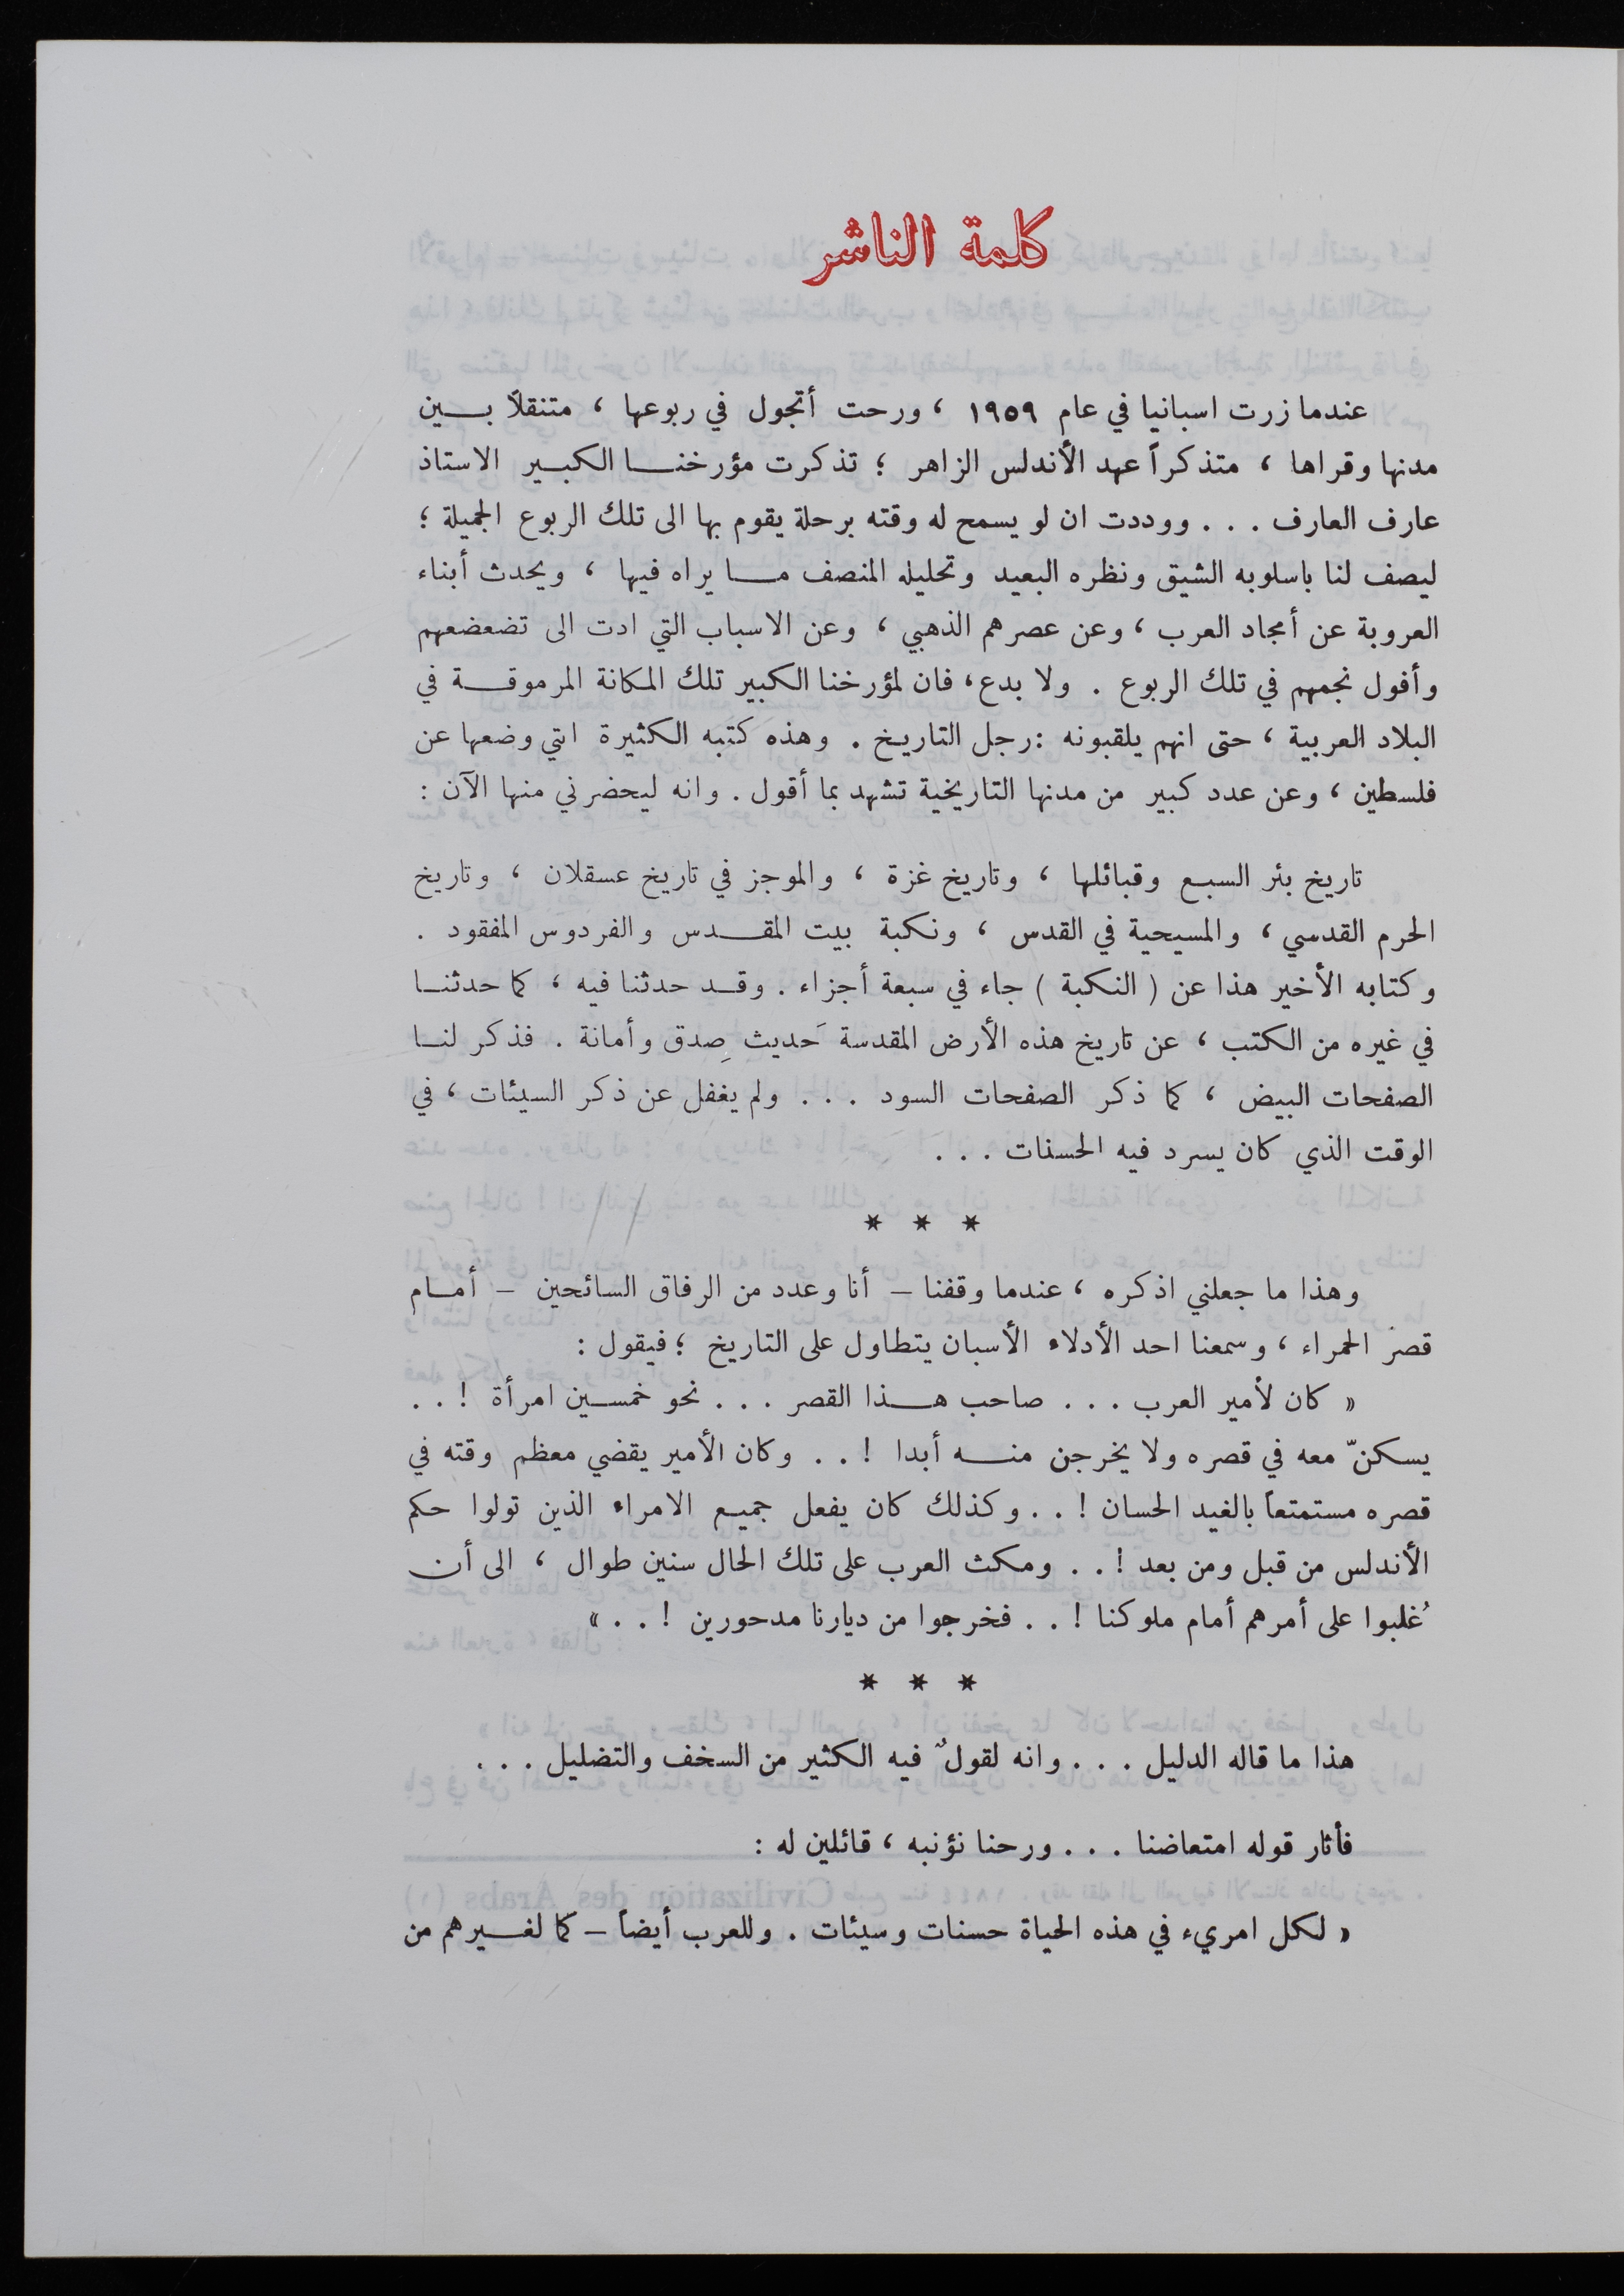 كلمة الناشر
عندما زرت اسبانيا في عام ١٩٥٩ ، ورحت أتجول في ربوعها ، متنقلاً بين
مدنها وقراها ، متذكراً عهد الأندلس الزاهر ؛ تذكرت مؤرخنا الكبير الاستاذ
عارف العارف . . . ووددت ان لو يسمح له وقته برحلة يقوم بها الى تلك الربوع الجميلة ؛
ليصف لنا باسلوبه الشيق ونظره البعيد وتحليله المنصف ما يراه فيها ، ويحدث أبناء
العروبة عن أمجاد العرب ، وعن عصرهم الذهبي ، وعن الاسباب التي ادت الى تضعضعهم
وأفول نجمهم في تلك الربوع . ولا بدع، فان لمؤرخنا الكبير تلك المكانة المرموقة في
البلاد العربية ، حتى انهم يلقبونه : رجل التاريخ . وهذه كتبه الكثيرة اتي وضعها عن
فلسطين ، وعن عدد كبير من مدنها التاريخية تشهد بما أقول . وانه ليحضرني منها الآن :
تاريخ بئر السبع وقبائلها ، وتاريخ غزة ، والموجز في تاريخ عسقلان ، وتاريخ
الحرم القدسي ، والمسيحية في القدس ، ونكبة بيت المقدس والفردوس المفقود .
وكتابه الأخير هذا عن ( النكبة ) جاء في سبعة أجزاء . وقد حدثنا فيه ، كما حدثنا
في غيره من الكتب ، عن تاريخ هذه الأرض المقدسة حَديث صِدق وأمانة . فذكر لنا
الصفحات البيض ، كما ذكر الصفحات السود . . . ولم يغفل عن ذكر السيئات ، في
الوقت الذي كان يسرد فيه الحسنات . . .
* * *
وهذا ما جعلني اذكره ، عندما وقفنا – أنا وعدد من الرفاق السائحين – أمام
قصر الحمراء ، وسمعنا احد الأدلاء الأسبان يتطاول على التاريخ ؛ فيقول :
« كان لأمير العرب . . . صاحب هذا القصر . . . نحو خمسين امرأة ! . .
يسكنّ معه في قصره ولا يخرجن منه أبدا ! . . وكان الأمير يقضي معظم وقته في
قصره مستمتعاً بالغيد الحسان ! . . وكذلك كان يفعل جميع الامراء الذين تولوا حكم
الأندلس من قبل ومن بعد ! . . ومكث العرب على تلك الحال سنين طوال ، الى أن
غُلبوا على أمرهم أمام ملوكنا ! . . فخرجوا من ديارنا مدحورين ! . . »
* * *
هذا ما قاله الدليل . . . وانه لقولٌ فيه الكثير من السخف والتضليل . . .
فأثار قوله امتعاضنا . . . ورحنا نؤنبه ، قائلين له :
« لكل امريء في هذه الحياة حسنات وسيئات . وللعرب أيضاً – كما لغيرهم من